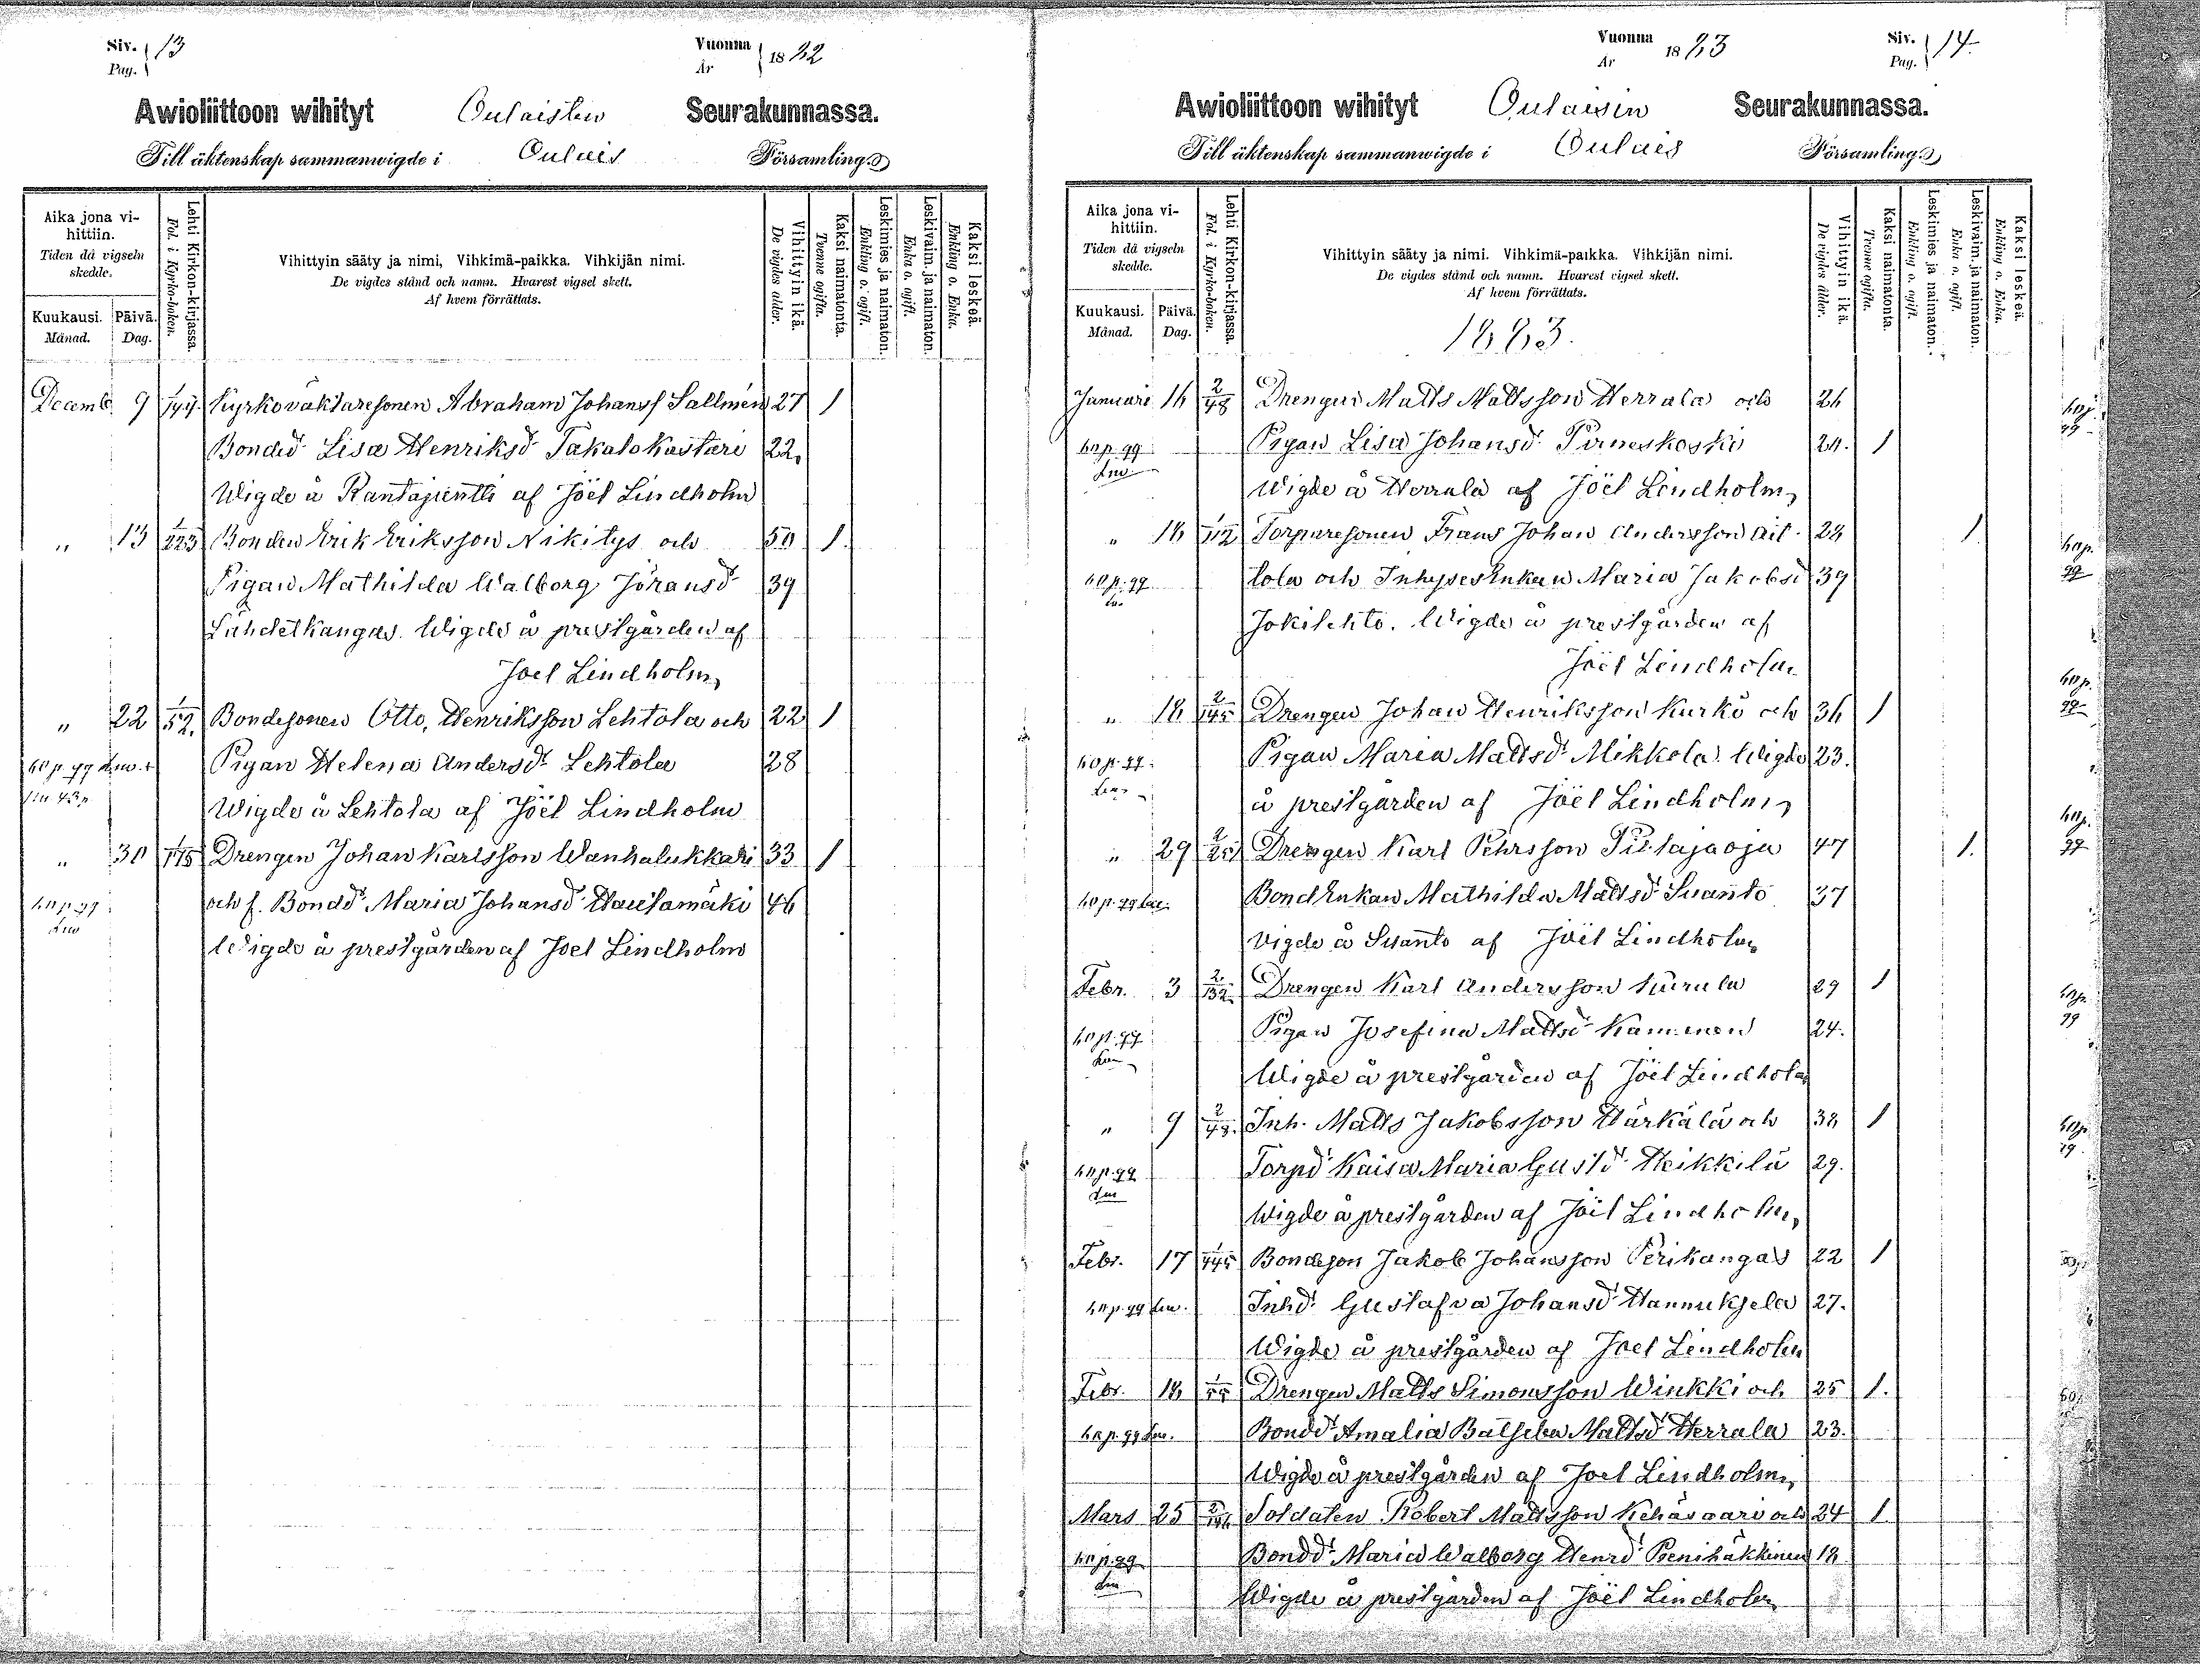 Siv. 13
Pag.
Vuonna 1882
År
Awioliittoon wihityt Oulaisten Seurakunnassa.
Till äktenskap sammanwigde i Oulais Församling.
Aika jona vihittiin.
Tiden då vigseln skedde.
Kuukausi. Päivä.
Månad. Dag.
Lehti Kirkon-kirjassa.
Fol. i Kyrko-boken.
Vihittyin sääty ja nimi, Vihkimä-paikka. Vihkijän nimi.
De vigdes stånd och namn. Hvarest vigsel skett.
Af hvem förrättats.
Vihittyin ikä.
De vigdes ålder.
Kaksi naimatonta.
Tvenne ogifta.
Leskimies ja naimaton.
Enkling o. ogift.
Leskivaim. ja naimaton.
Enka o. ogift.
Kaksi leskeä.
Enkling o. Enka.
Decemb 9 Kyrkoväktaresonen Abraham Johanss Sallmén 27 1
Bondd Lisa Henriksd Takalokastari 22.
Wigde å Rantapientti af Joël Lindholm
" 13 1/223 Bonden Erik Eriksson Nikitys och 50 1.
Pigan Mathilda Walborg Jöransd 39
Lähdetkangas. Wigde å prestgården af
Joel Lindholm
" 22 1/52. Bondesonen Otto Henriksson Lehtola och 22 1
Pigan Helena Andersd Lehtola 28
Wigde å Lehtola af Joël Lindholm
" 30 1/175 Drengen Johan Karlsson Wanhalukkari 33 1
och f. Bondd Maria Johansd Hautamäki 46
Wigde å prestgården af Joel Lindholm
Vuonna 1883
År
Siv. 14
Pag.
Awioliittoon wihityt Oulaisin Seurakunnassa.
Till äktenskap sammanwigde i Oulais Församling.
Aika jona vihittiin.
Tiden då vigseln skedde.
Kuukausi. Päivä.
Månad. Dag.
Lehti Kirkon-kirjassa.
Fol. i Kyrko-boken.
Vihittyin sääty ja nimi. Vihkimä-paikka. Vihkijän nimi.
De vigdes stånd och namn. Hvarest vigsel skett.
Af hvem förrättats.
1883.
Vihittyin ikä.
De vigdes ålder.
Kaksi naimatonta.
Tvenne ogifta.
Leskimies ja naimaton.
Enkling o. ogift.
Leskivaim. ja naimaton.
Enka o. ogift.
Kaksi leskeä.
Enkling o. Enka.
Januari 16 2/48 Drengen Matts Mattsson Herrala och 26
Pigan Lisa Johansd Pirneskoski 24. 1
Wigde å Herrala af Joël Lindholm
" 18 1/112 Torparesonen Frans Johan Andersson Ait- 28 1
tola och Inhyses Enkan Maria Jakobsd 39
Jokilehto. Wigde å prestgården af
Joël Lindholm
" 18 2/145 Drengen Johan Henriksson Kurko och 36 1
Pigan Maria Mattsd Mikkola Wigde 23.
å prestgården af Joël Lindholm
" 29 Drengen Karl Pehrsson Pihlajaoja 47 1.
Bond Enkan Mathilda Mattsd Suanto 37
vigde å Suanto af Joël Lindholm
Febr. 3 2/132 Drengen Karl Andersson 29 1
Pigan Josefina Mattsd Kamunen 24.
Wigde å prestgården af Joël Lindholm
" 9 2/48. Inh. Matts Jakobsson Härkälä och 38 1
Torpd Kaisa Maria Gustd Heikkilä 29.
Wigde å prestgården af Joël Lindholm
Febr. 17 Bondeson Jakob Johansson Perikangas 22 1
Inhd Gustafva Johansd Hannuksela 27.
Wigde å prestgården af Joel Lindholm
Febr. 18 1/55 Drengen Matts Simonsson Winkki och 25 1.
Bondd Amalia Batseba Mattsd Herrala 23.
Wigde å prestgården af Joel Lindholm
Mars 25 Soldaten Robert Mattsson Kehäsaari och 24 1
Bondd Maria Walborg Henrd Penihäkkinen 18
Wigde å prestgården af Joël Lindholm